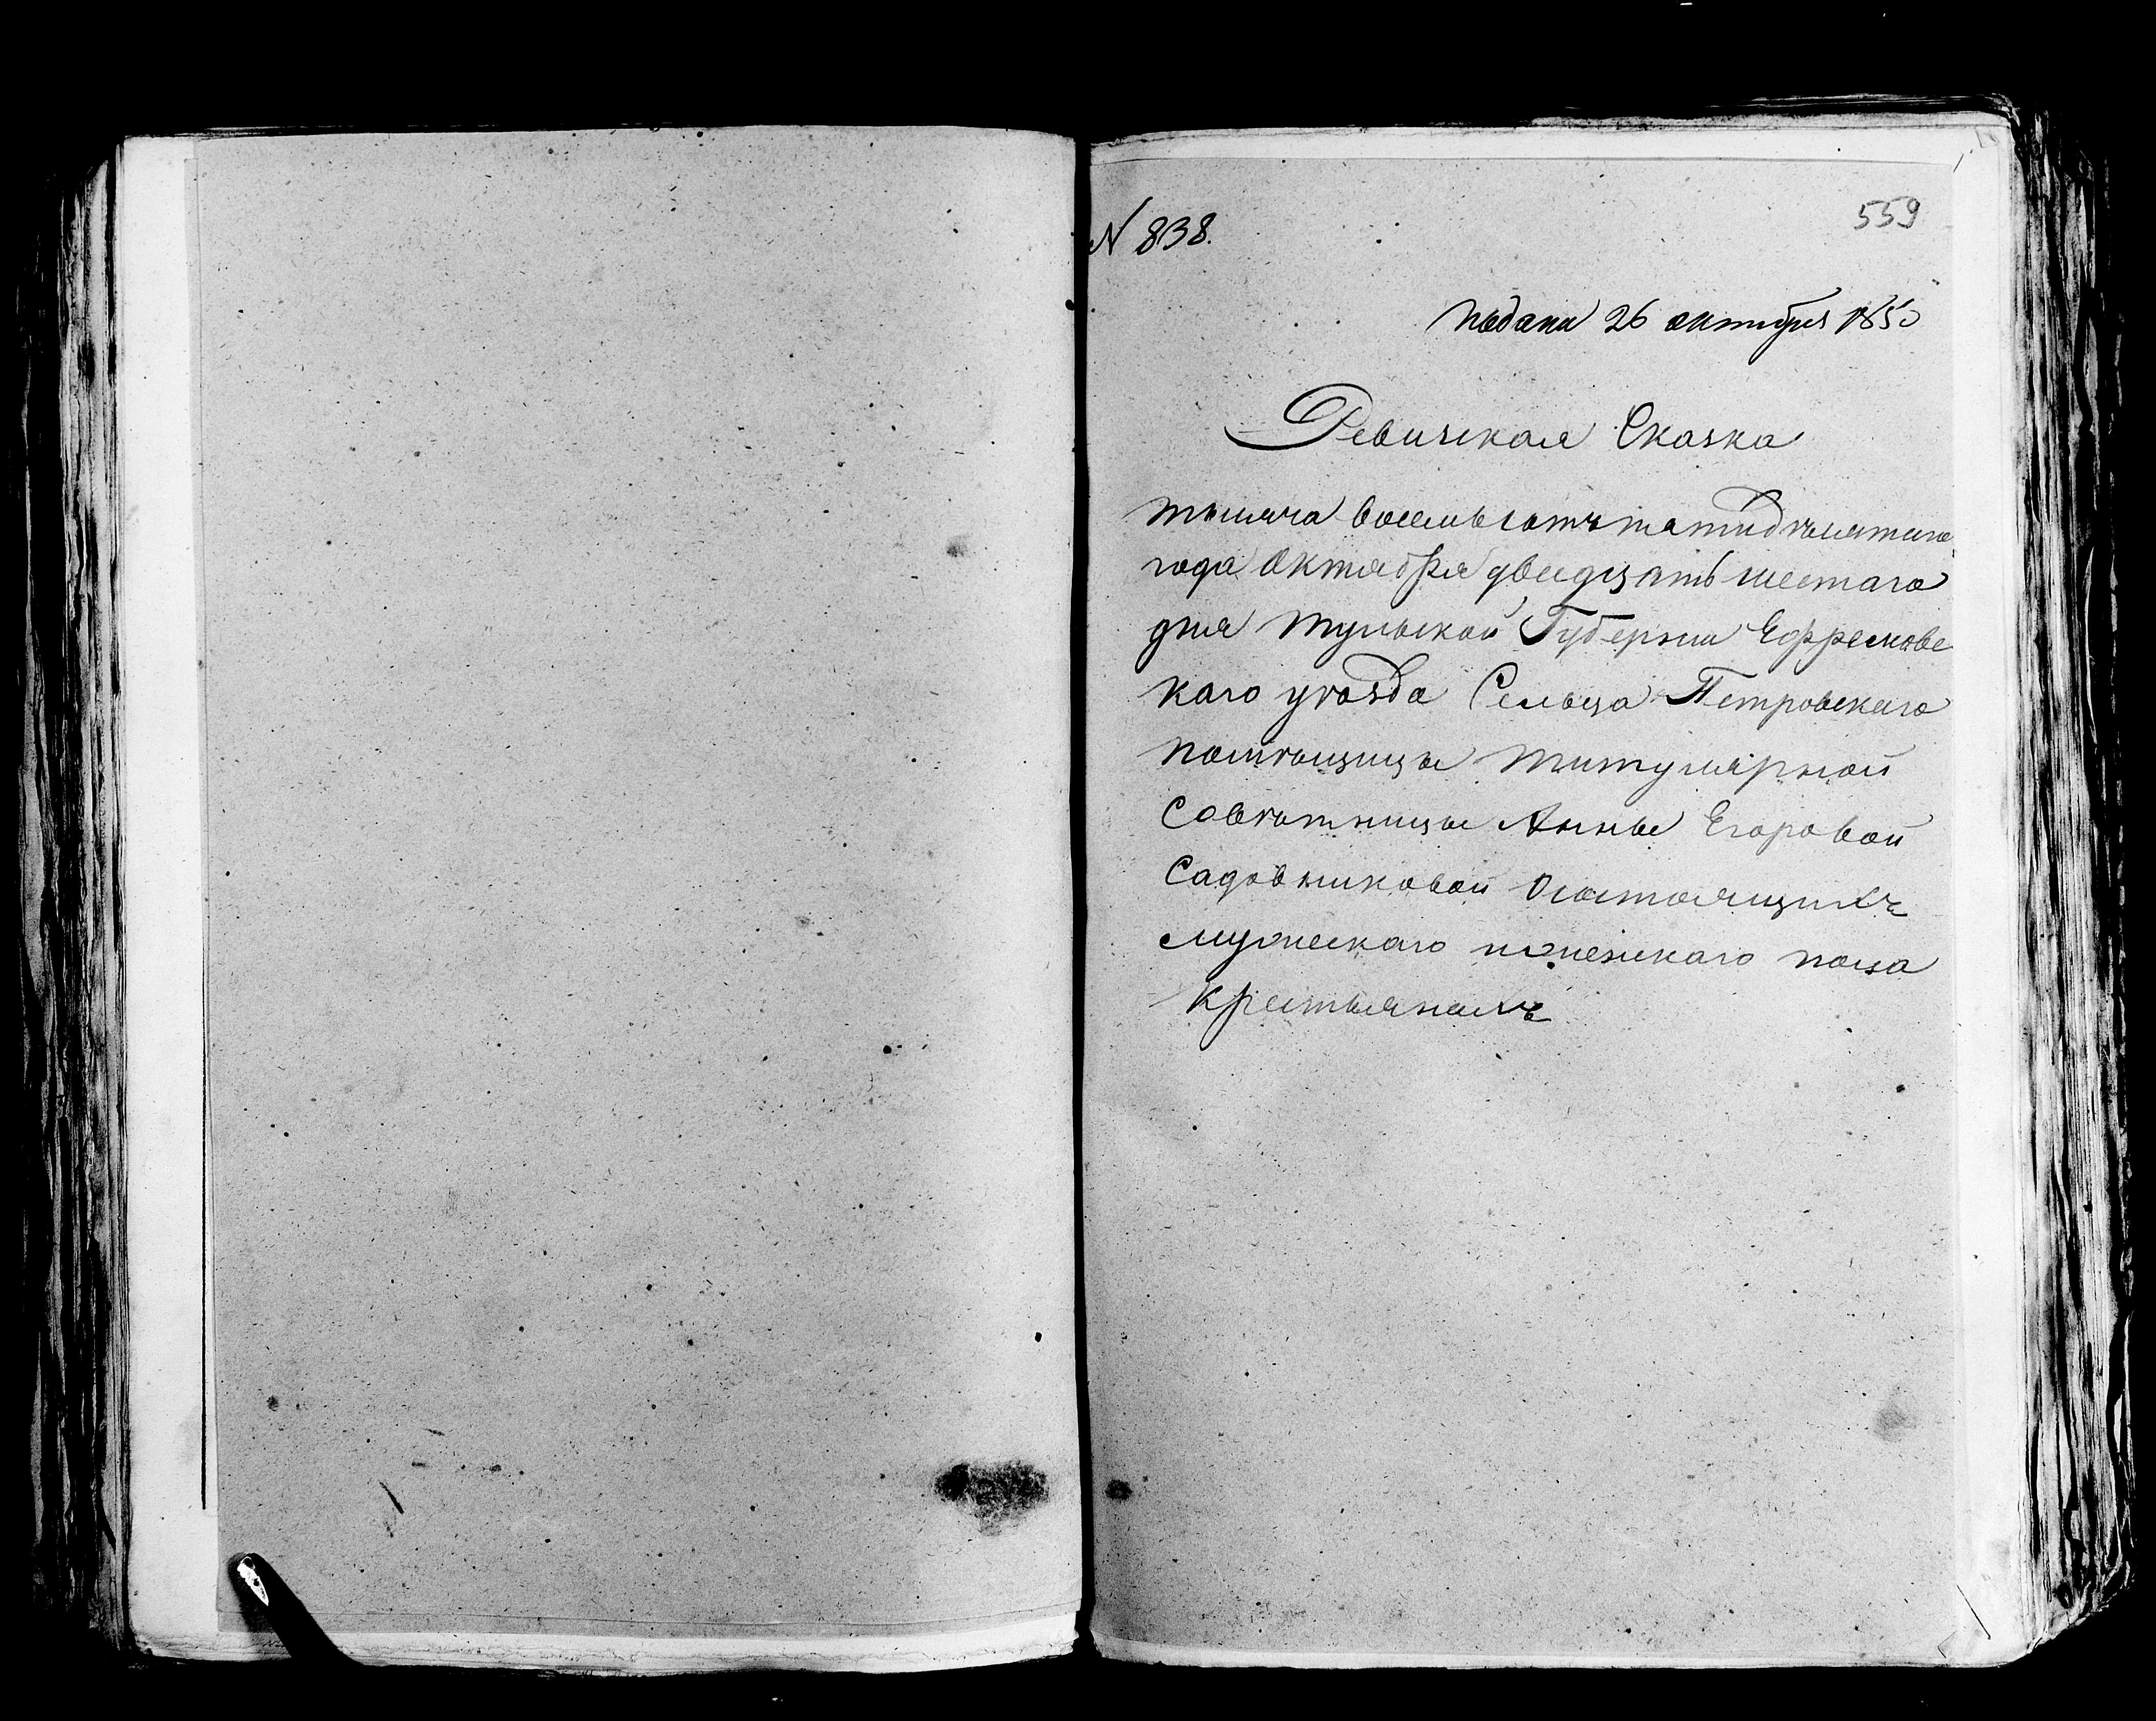 № 838.
559
подана 26 октября 1850
Ревизская Сказка
тысяча восемьсотъ пятидѣсятаго
года Октября двадцать шестаго
дня Тульской Губернии Ефремовс
каго уѣзда Сельца Петровскаго
помѣщицы титулярной
Совѣтницы Анны Егоровой
Садовниковой Осостоящихъ
мужескаго иженскаго пола
крестьянахъ